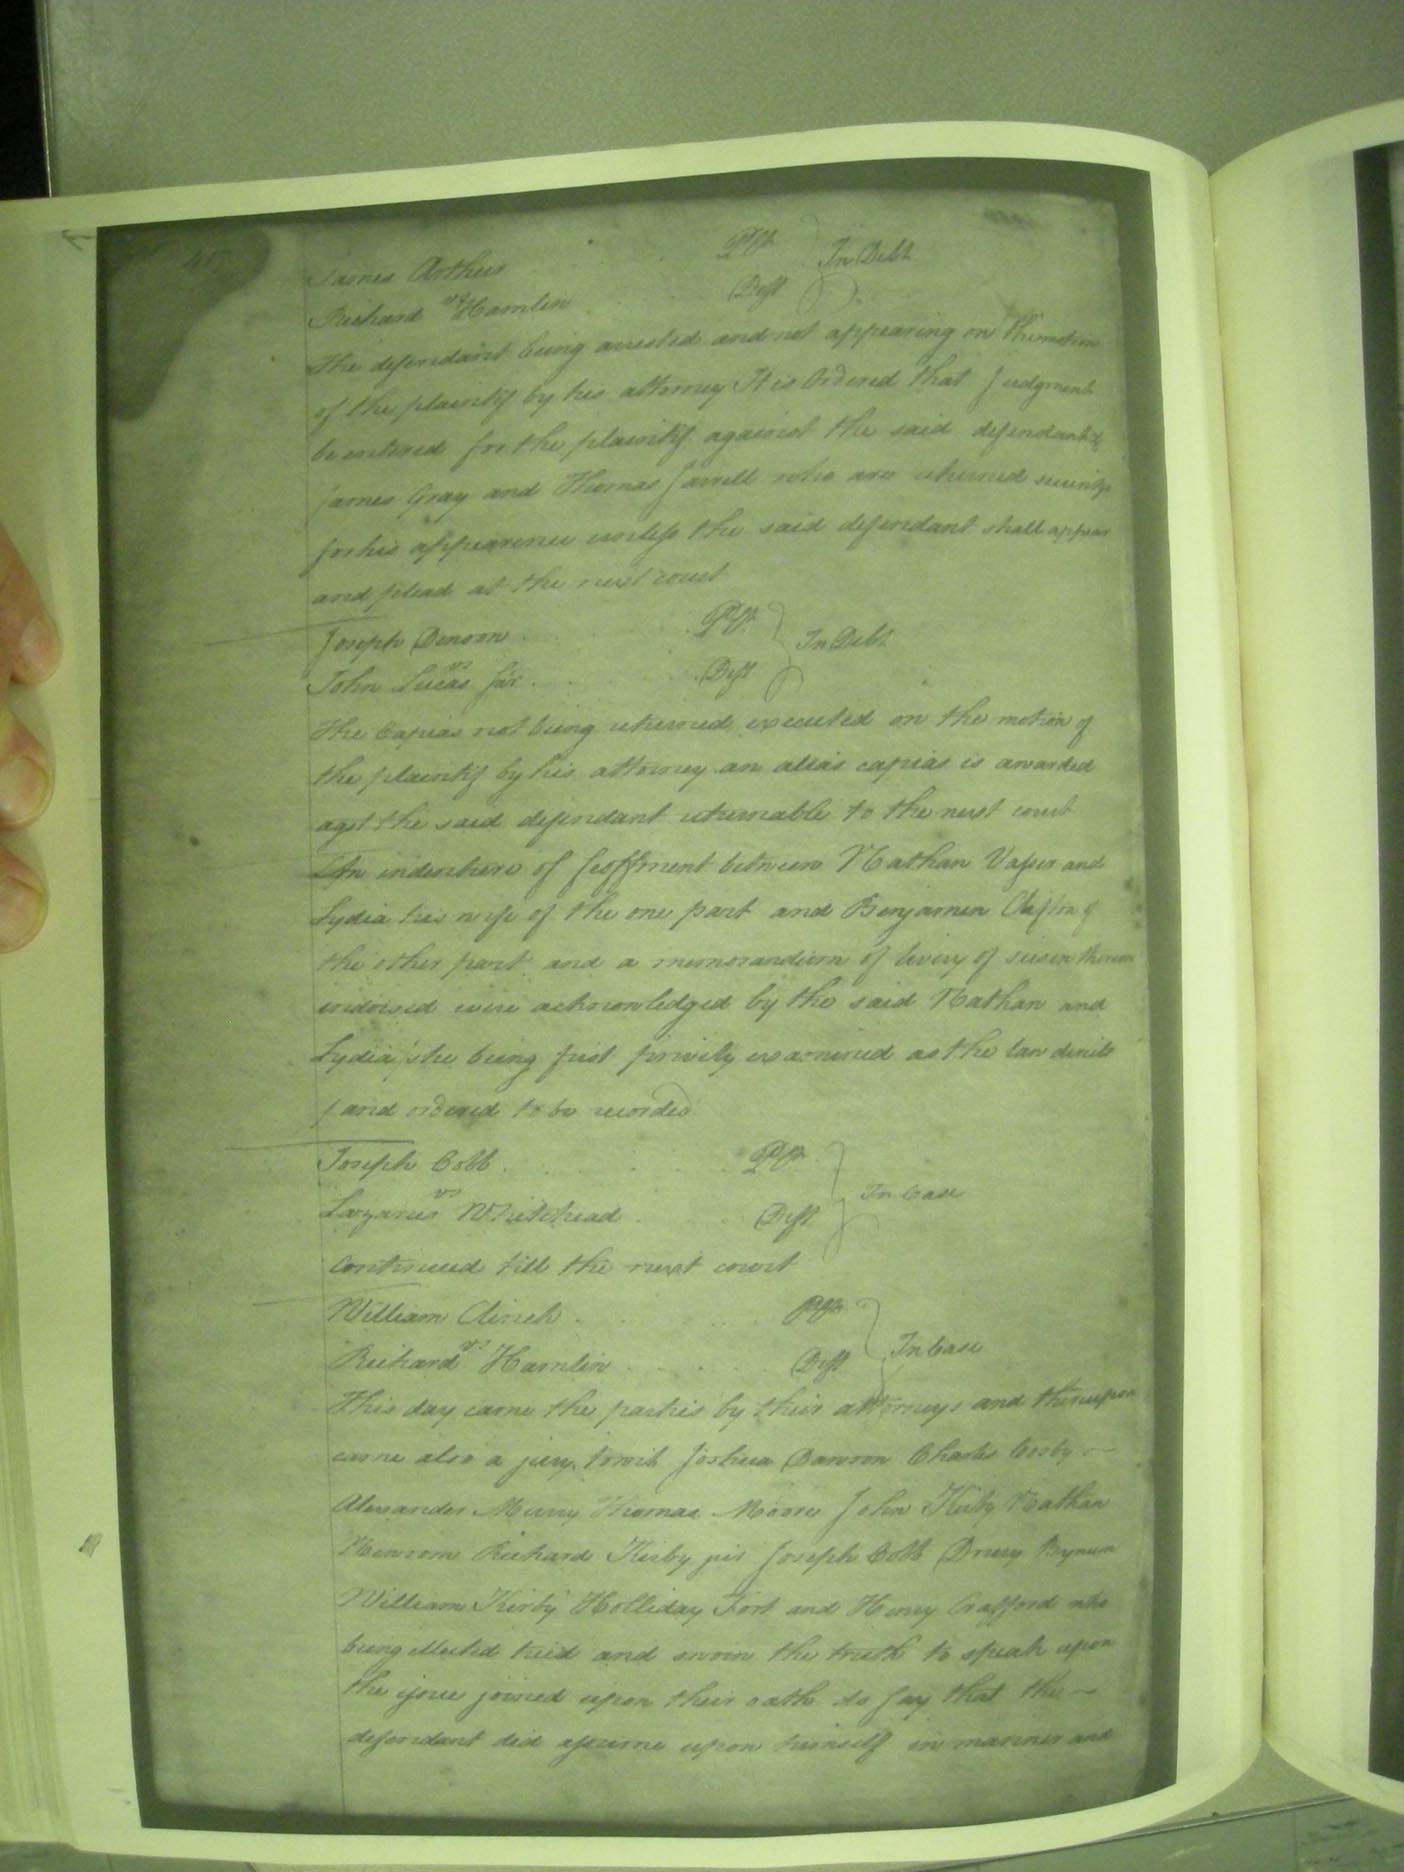 James Arthur Pltf
vs In Debt
Richard Hamlin Deft
The defendant being arrested and not appearing on the motion
of the plaintif by his attorney It is Ordered that Judgment
be entered for the plaintif against the said defendant &
James Gray and Thomas Jarrell who are returned security
for his appearence unless the said defendant shall appear
and plead at the next court
Joseph Denson Pltf
vs In Debt
John Lucas Deft
The Capias not being returned executed on the motion of
the plaintif by his attorney an alias capias is awarded
agst the said defendant returnable to the next court
An indenture of feoffment between Nathan Vasser and
Lydia his wife of the one part and Benjamin Clifton of
the other part and a memorandum of livery of seisen thereon
indorsed were acknowledged by the said Nathan and
Lydia she being first privily examined as the law directs
and ordered to be recorded
Joseph Cobb Pltf
vs In Case
Lazarus Whitehead Deft
Continued till the next court
William Clinch Pltf
vs In Case
Richard Hamlin Deft
This day came the parties by their attorneys and thereupon
came also a jury towit Joshua Dawson Charles Cosby
Alexander Murry Thomas Moore John Kirby Nathan
Newsom Richard Kirby jur Joseph Cobb Drury Bynum
William Kirby Holliday Fort and Henry Crafford who
being elected tried and sworn the truth to speak upon
the issue joined upon their oath do say that the
defendant did assume upon himself in manner and